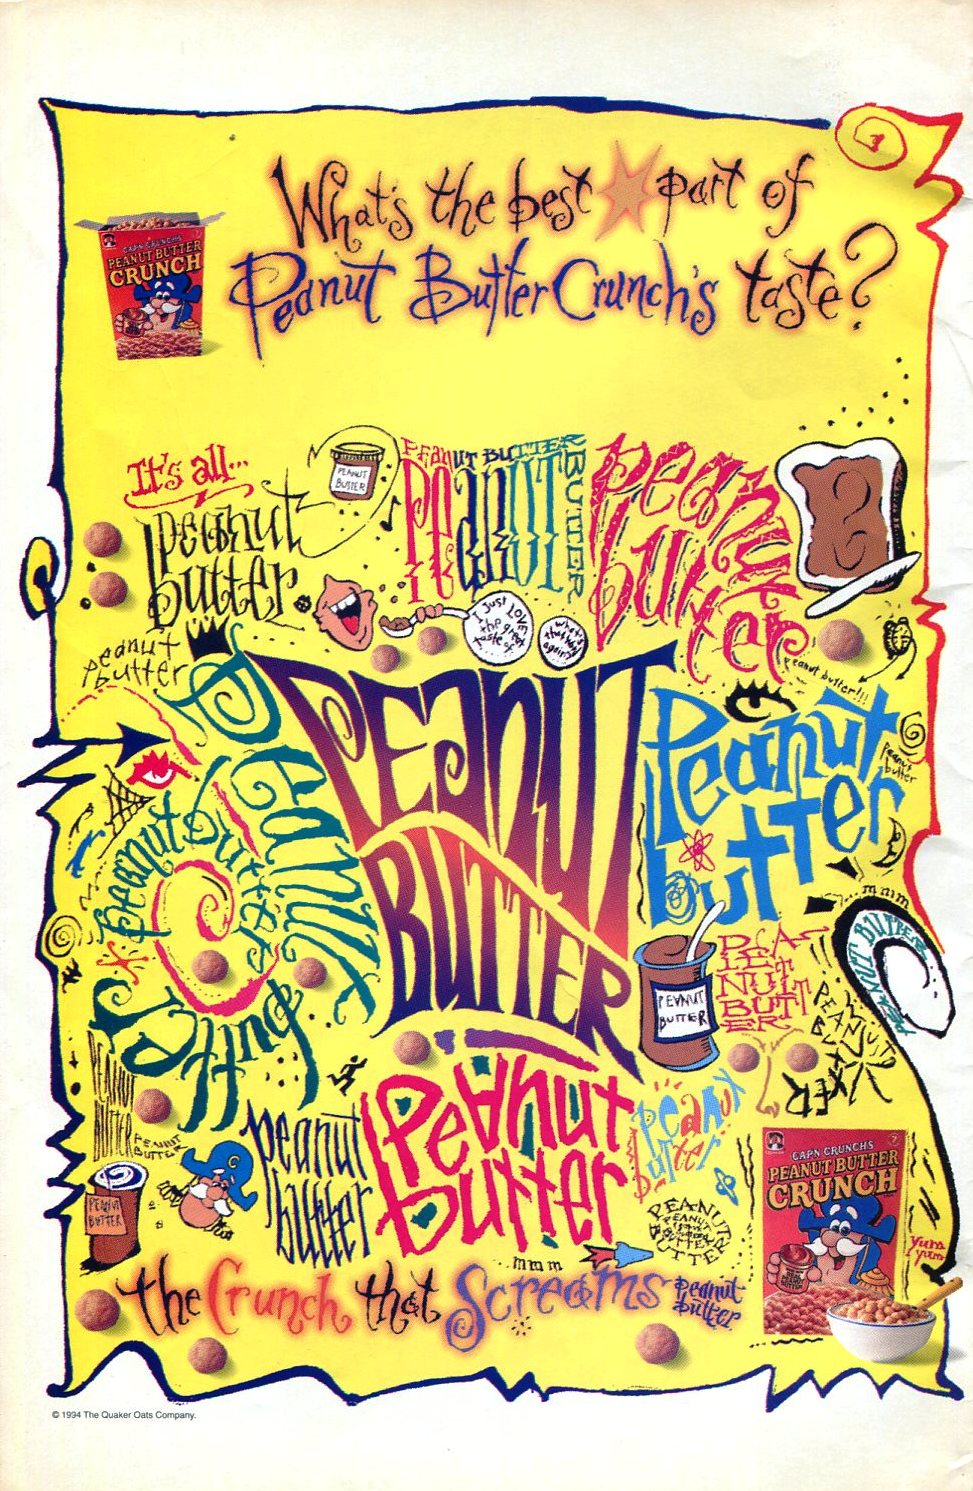 What's the best part of
Peanut Butter Crunch's taste?
CAP'N CRUNCH'S
PEANUT BUTTER
CRUNCH
It's all...
peanut
butter
PEANUT
BUTTER
PEANUT BUTTER
PEANUT
BUTTER
peanut
butter
Just LOVE
the great
taste of
what's
that you
again?
peanut
butter
peanut butter!!!
PEANUT
BUTTER
Peanut
butter
peanut
butter
Peanut
Butter
peanut butter
mmm
PEANUT BUTTER
PEANUT
BUTTER
PEA-
NUT
BUTT
ER
PEANUT
BUTTER
PEANUT
BUTTER
PEANUT
BUTTER
PEANUT
BUTTER
peanut
butter
Peanut
butter
Peanut
butter
PEANUT
PEANUT
BUTTER
BUTTER
mmm
CAP'N CRUNCH'S
PEANUT BUTTER
CRUNCH
yum
yum
the Crunch that Screams peanut
butter.
© 1994 The Quaker Oats Company.